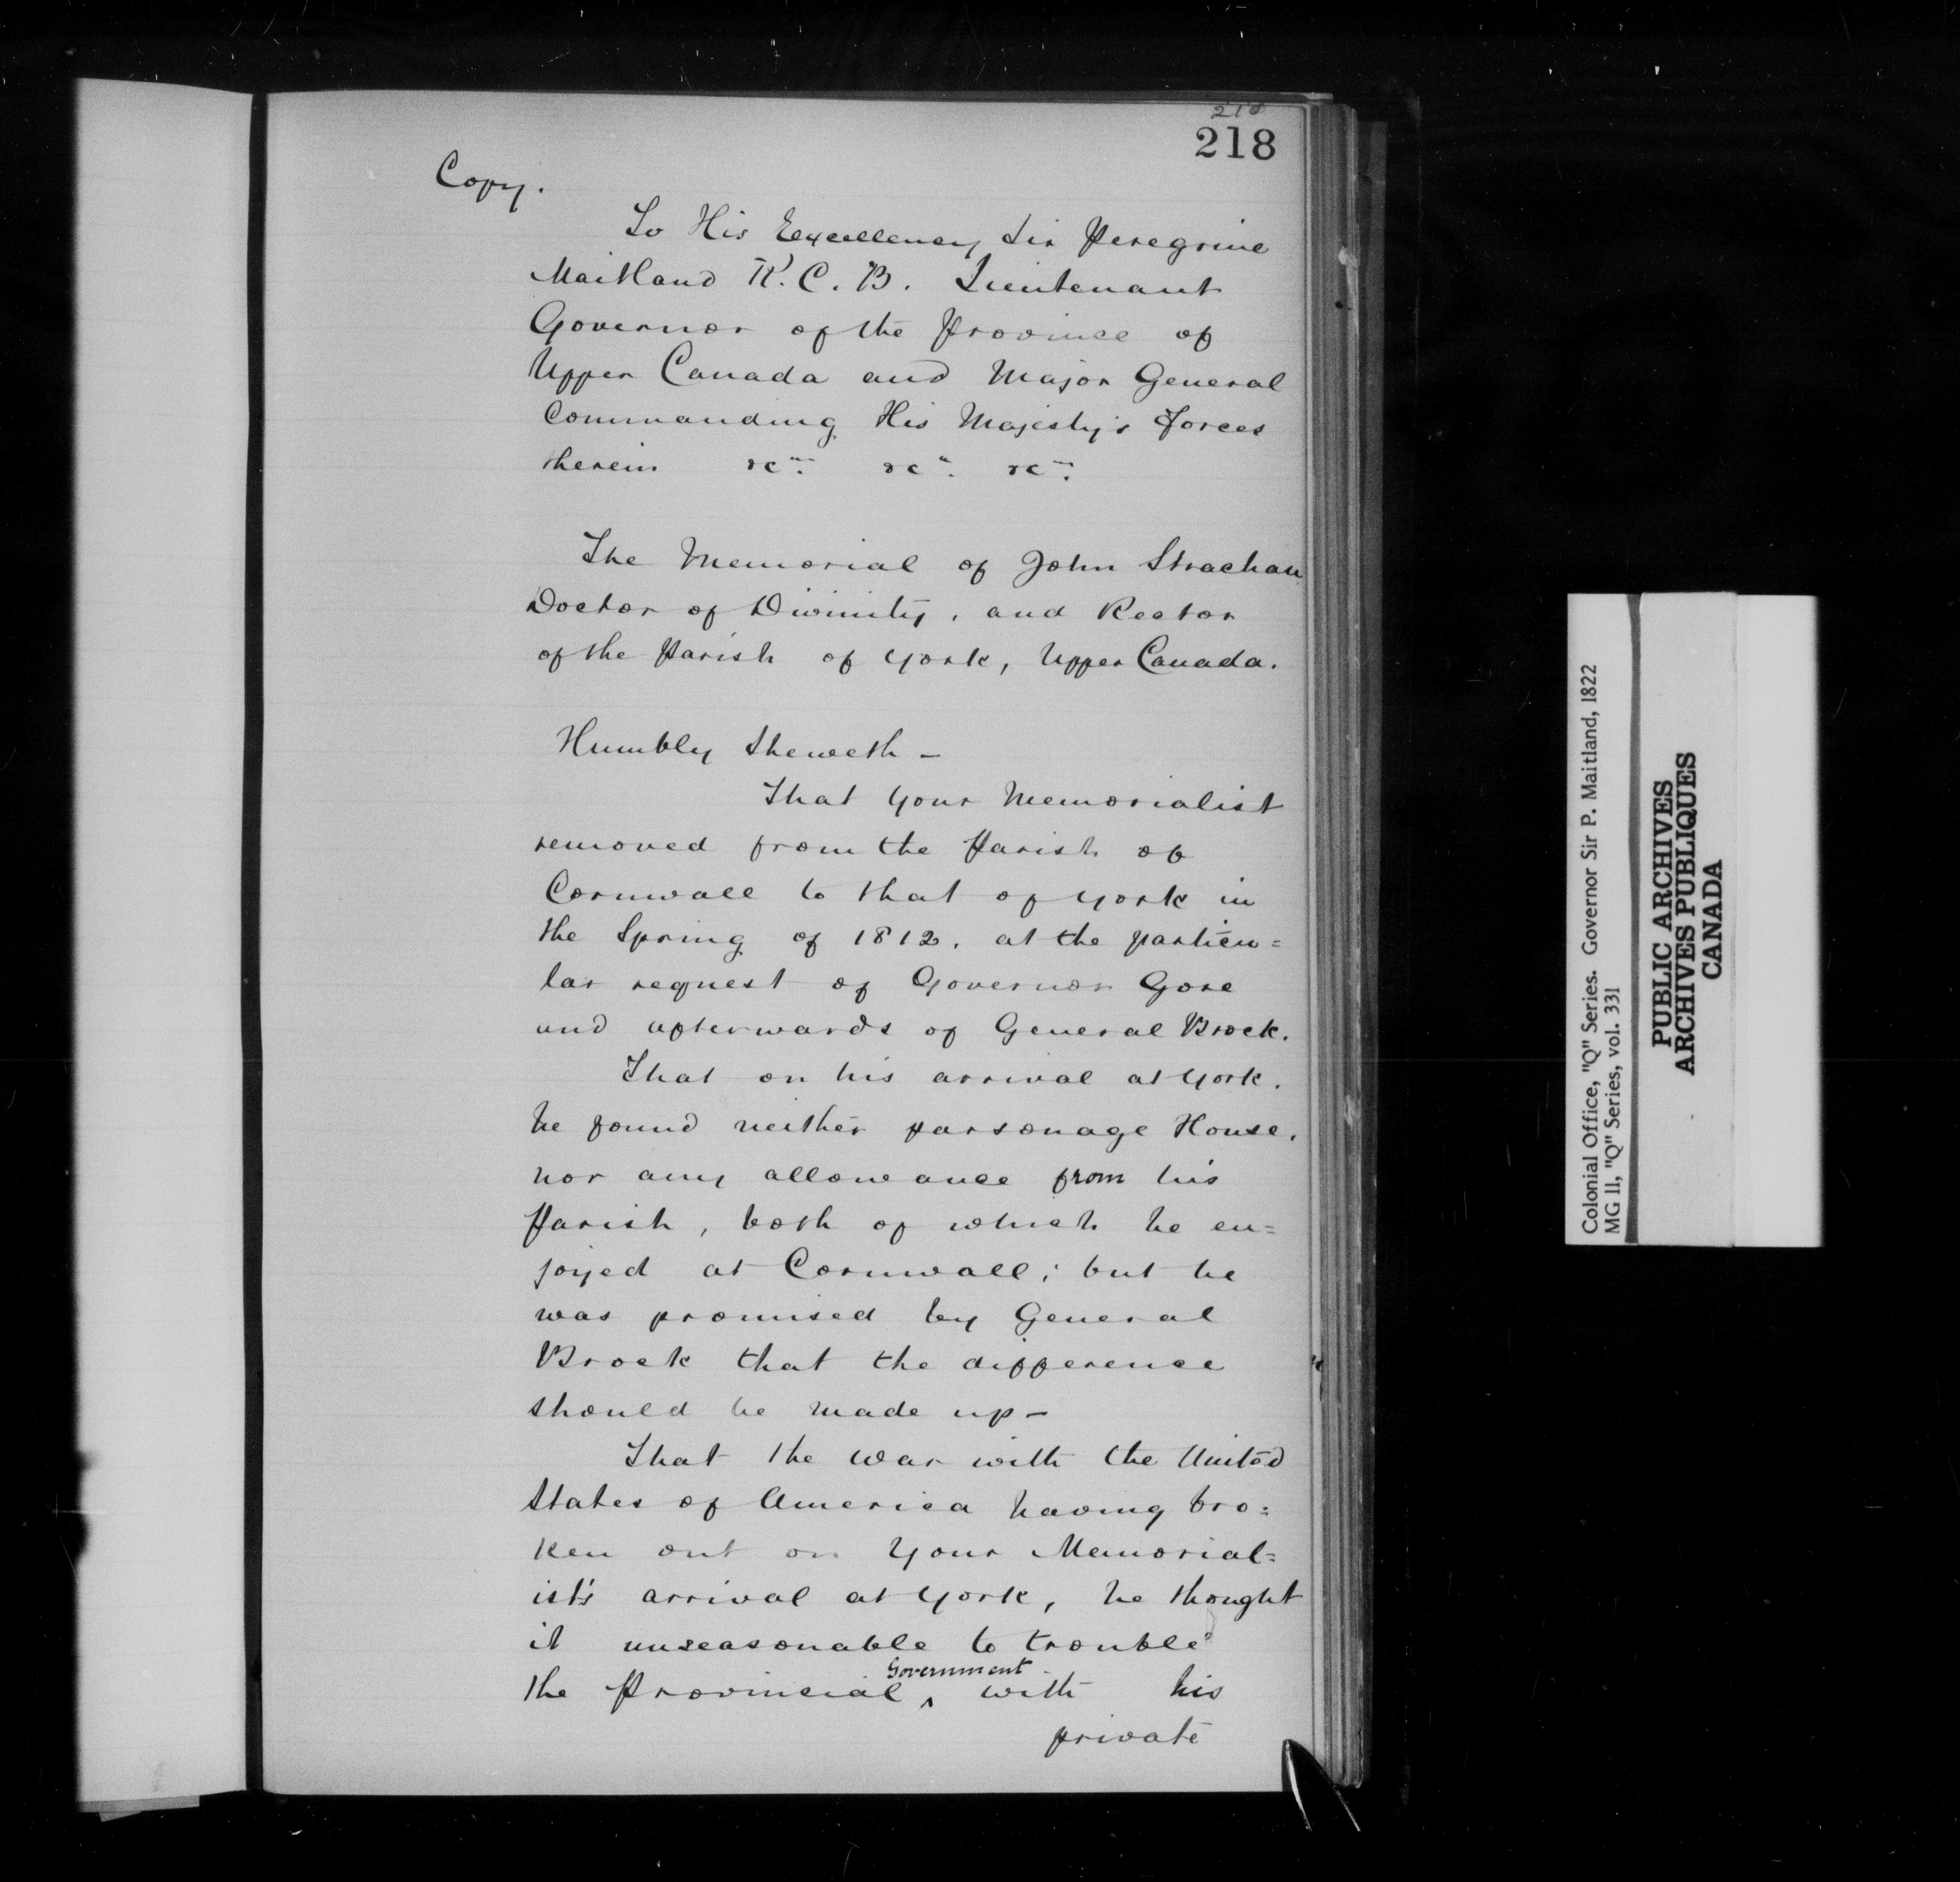 218
218
Copy.
To His Excellency Sir Peregrine
Maitland K. C. B. Lieutenant
Governor of the Province of
Upper Canada and Major General
Commanding His Majesty's Forces
therein &c. &c. &c.
The Memorial of John Strachan
Doctor of Divinity, and Rector
of the Parish of York, Upper Canada.
Humbly Sheweth –
That your Memorialist
removed from the Parish of
Cornwall to that of York in
the Spring of 1812, at the particu=
lar request of Governor Gore
and afterwards of General Brock.
That on his arrival at York,
he found neither parsonage House,
nor any allowance from his
Parish, both of which he en=
joyed at Cornwall; but he
was promised by General
Brock that the difference
should be made up –
That the War with the United
States of America having bro=
ken out on Your Memorial=
ist's arrival at York, he thought
it unseasonable to trouble
the Provincial ^ Government with his
private
Colonial Office, "Q" Series. Governor Sir P. Maitland, 1822
MG 11, "Q" Series, vol. 331
PUBLIC ARCHIVES
ARCHIVES PUBLIQUES
CANADA